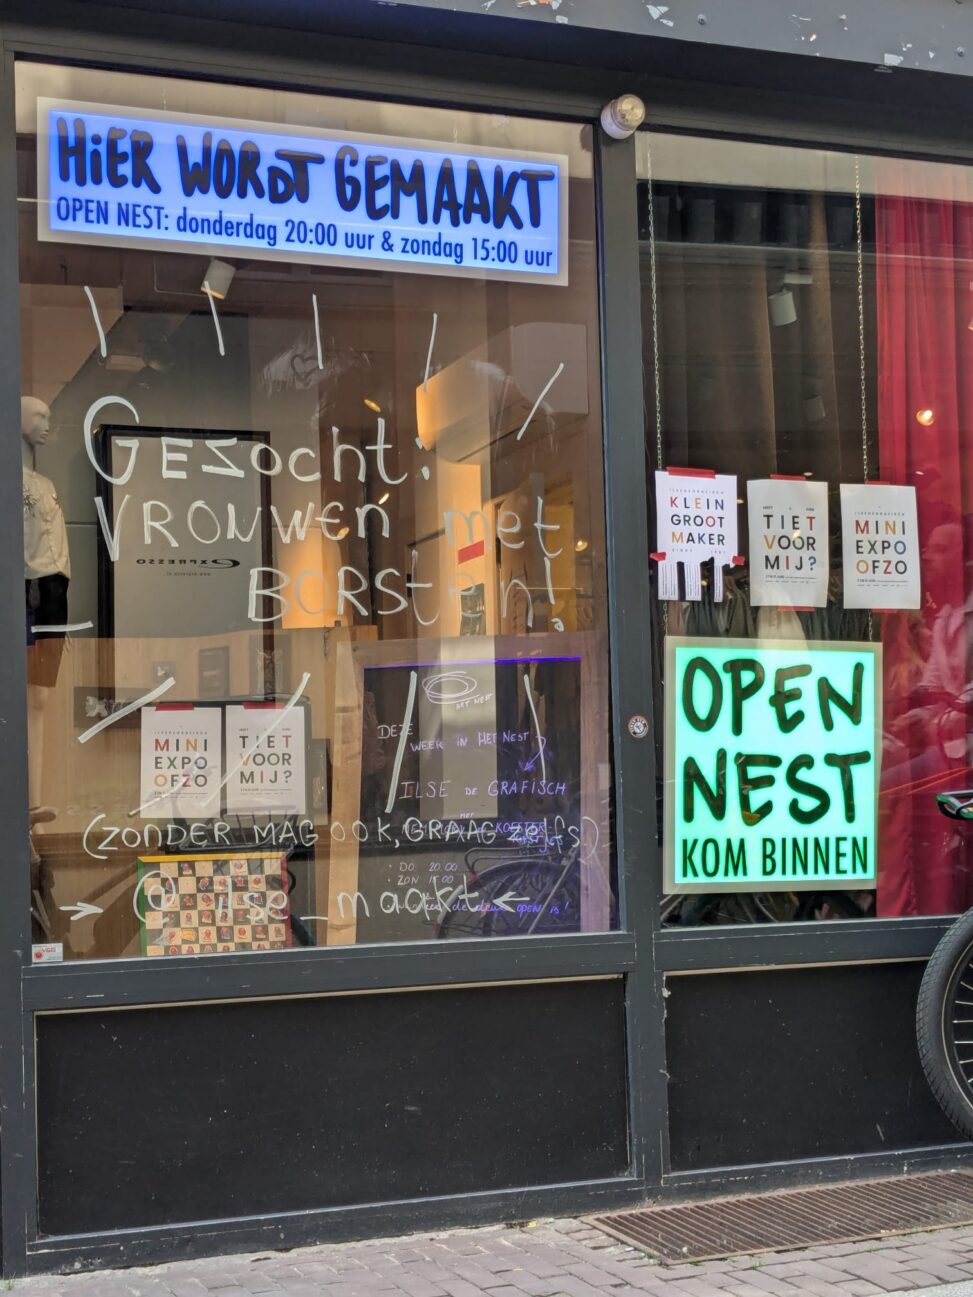 HiER WORDT GEMAAKT
OPEN NEST: donderdag 20:00 uur & zondag 15:00 uur
GEZocht:
VROUWEN met
BORSten!
EXPRESSO
MINI
EXPO
OFZO
TIET
VOOR
MIJ?
ART NEST
DEZE
WEEK IN HET NEST
ILSE DE GRAFISCH
(ZONDER MAG OOK, GRAAG zelfs)
· DO 20.00
· ZON
@ ilse_maakt
open is!
ILSEDEGRAFISCH
KLEIN
GROOT
MAKER
TIET
VOOR
MIJ?
ILSEDEGRAFISCH
MINI
EXPO
OFZO
OPEN
NEST
KOM BINNEN